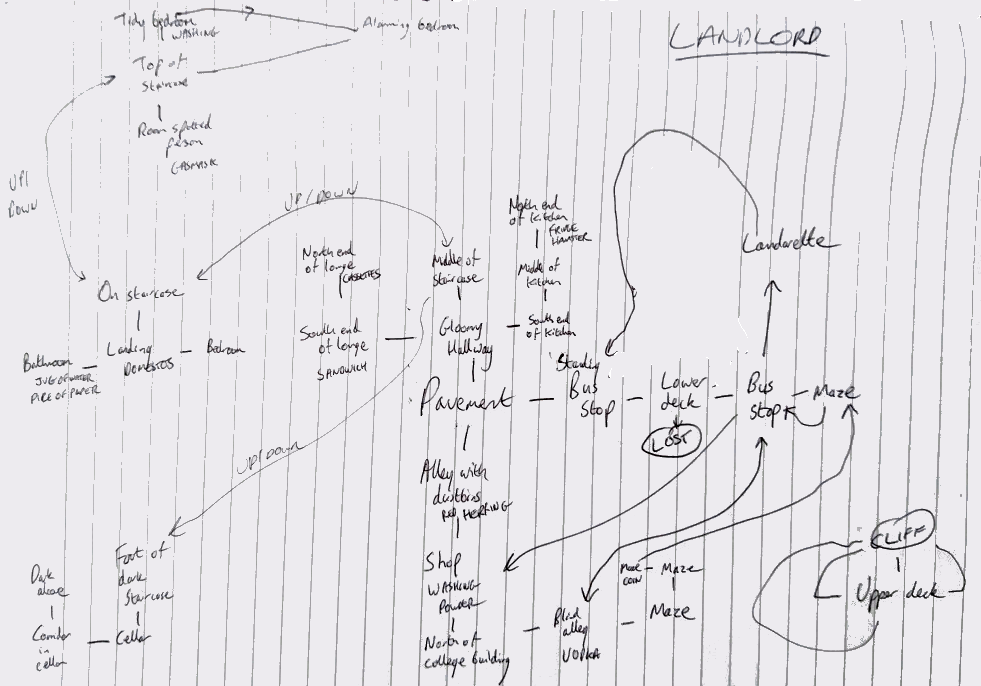 LANDLORD
Tidy bedroom
WASHING
Alarming bedroom
Top of
staircase
Room spotted
person
GASMASK
UP/
DOWN
UP/DOWN
On staircase
Bathroom
JUG OF WATER
Landing
DOMESTOS
Bedroom
North end
of longe
CASSETTES
South end
of longe
SANDWICH
Middle of
staircase
Gloomy
Hallway
North end
of kitchen
FRIDGE
HAMSTER
Middle of
kitchen
South end
of kitchen
Pavement
Standing
Bus
Stop
Lower
deck
LOST
Bus
stop
Maze
Landarette
UP/DOWN
Alley with
dustbins
RED HERRING
Shop
WASHING
POWDER
North of
college building
Blind
alley
VODKA
Maze
COIN
Maze
Maze
CLIFF
Upper deck
Foot of
dark
staircase
Cellar
Corridor
in
cellar
Dark